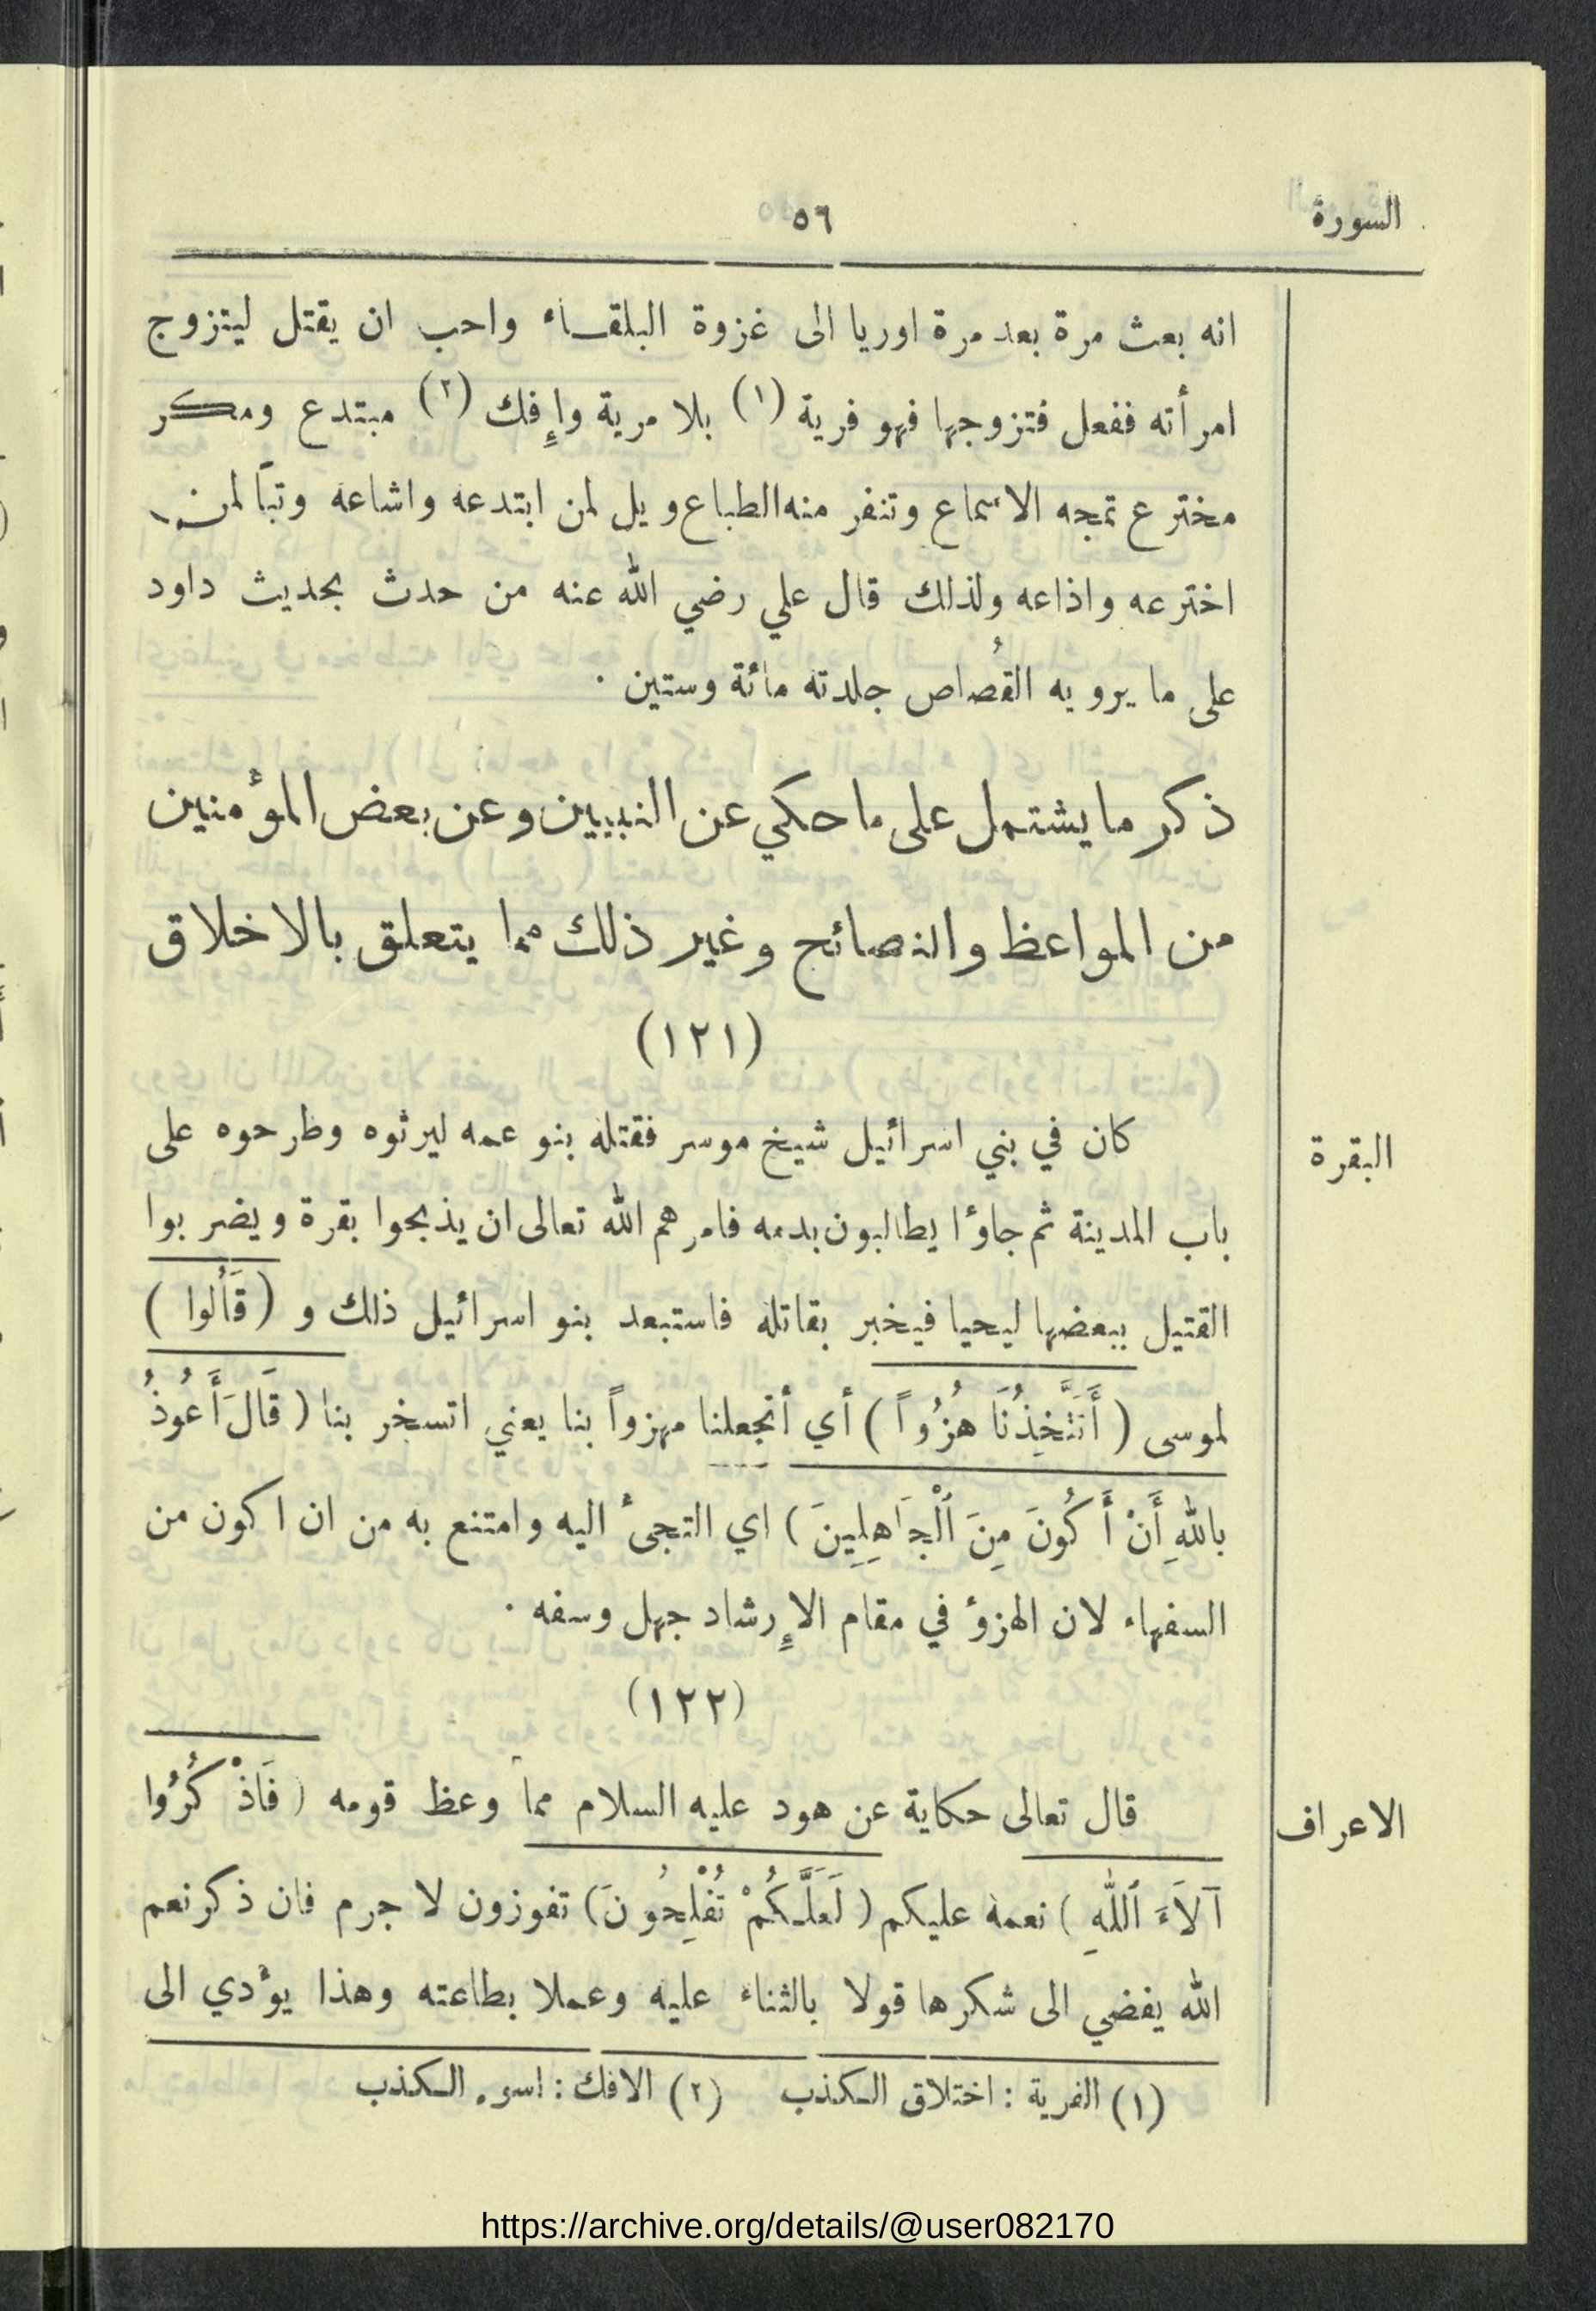 السورة
٥٦
انه بعث مرة بعد مرة اوريا الى غزوة البلقاء واحب ان يقتل ليتزوج
امرأته ففعل فتزوجها فهو فرية (١) بلا مرية وإفك (٢) مبتدع ومكر
مخترع تمجه الاسماع وتنفر منه الطباع ويل لمن ابتدعه واشاعه وتباً لمن
اخترعه واذاعه ولذلك قال علي رضي الله عنه من حدث بحديث داود
على ما يرويه القُصاص جلدته مائة وستين .
ذكر ما يشتمل على ما حكي عن النبيين وعن بعض المؤمنين
من المواعظ والنصائح وغير ذلك مما يتعلق بالاخلاق
(١٢١)
البقرة
كان في بني اسرائيل شيخ موسر فقتله بنو عمه ليرثوه وطرحوه على
باب المدينة ثم جاؤا يطالبون بدمه فامرهم الله تعالى ان يذبحوا بقرة ويضربوا
القتيل ببعضها ليحيا فيخبر بقاتله فاستبعد بنو اسرائيل ذلك و (قَالُوا)
لموسى (أَتَتَّخِذُنَا هُزُواً) أي أتجعلنا مهزواً بنا يعني اتسخر بنا (قَالَ أَعُوذُ
باللهِ أَنْ أَكُونَ مِنَ ٱلْجَاهِلِينَ) اي التجئ اليه وامتنع به من ان اكون من
السفهاء لان الهزؤ في مقام الإرشاد جهل وسفه .
(١٢٢)
الاعراف
قال تعالى حكاية عن هود عليه السلام مما وعظ قومه (فَاذْكُرُوا
آلَاءَ ٱللهِ) نعمه عليكم (لَعَلَّكُمْ تُفْلِحُونَ) تفوزون لا جرم فان ذكر نعم
الله يفضي الى شكرها قولا بالثناء عليه وعملا بطاعته وهذا يؤدي الى
(١) الفرية : اختلاق الكذب (٢) الافك : اسوء الكذب
https://archive.org/details/@user082170